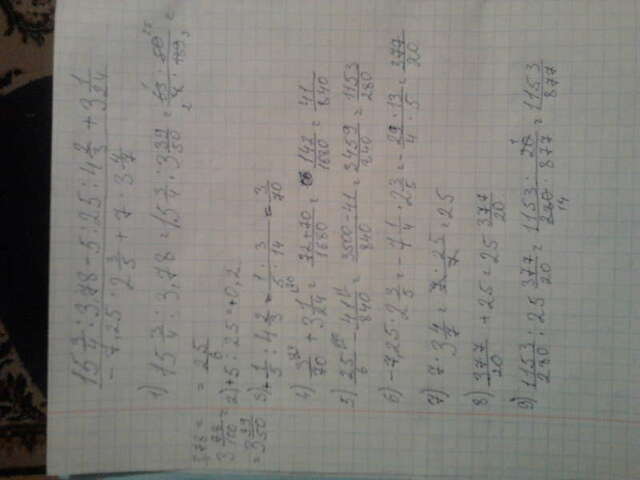 15 3/4 : 3,78 - 5 : 25 : 4 2/3 + 3 1/24
- 7,25 : 2 3/5 + 7 · 3 4/7
1) 15 3/4 : 3,78 = 15 3/4 : 3 39/50 =
3 78/100 =
= 3 39/50
= 25/6
2) + 5 : 25 = + 0,2
3) - 1/5 : 4 2/3 = 1/5 · 3/14 = 3/70
4) 3/70 + 3 1/24 = 72+70/1680 = 142/1680 = 41/840
5) 25/6 - 41/840 = 3500-41/840 = 3459/840 = 1153/280
6) - 7,25 · 2 3/5 = - 7 1/4 · 2 3/5 = - 29/4 · 13/5 = 377/20
7) 7 · 3 4/7 = 7 · 25/7 = 25
8) 377/20 + 25 = 25 377/20
9) 1153/280 : 25 377/20 = 1153/280 · 20/877 = 1153/877
14